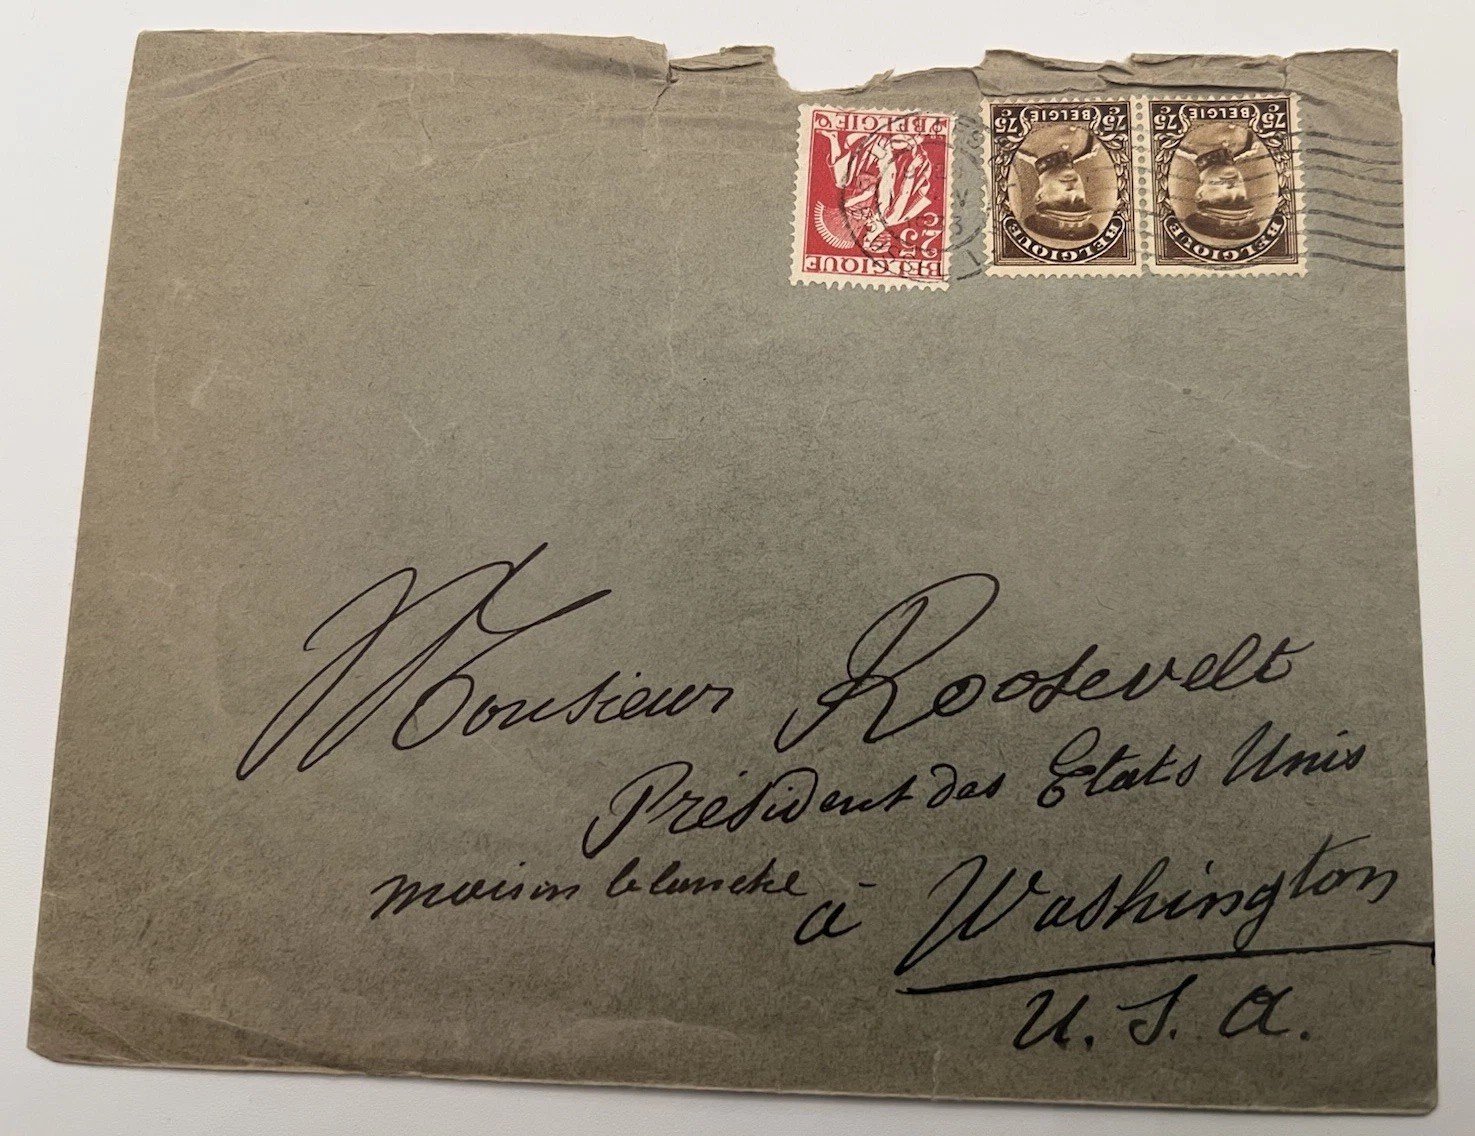 BELGIE
25 C
BELGIQUE
75 C BELGIE 75 C
BELGIQUE
75 C BELGIE 75 C
BELGIQUE
Monsieur Roosevelt
Président des Etats Unis
maison blanche
à Washington
U. S. A.